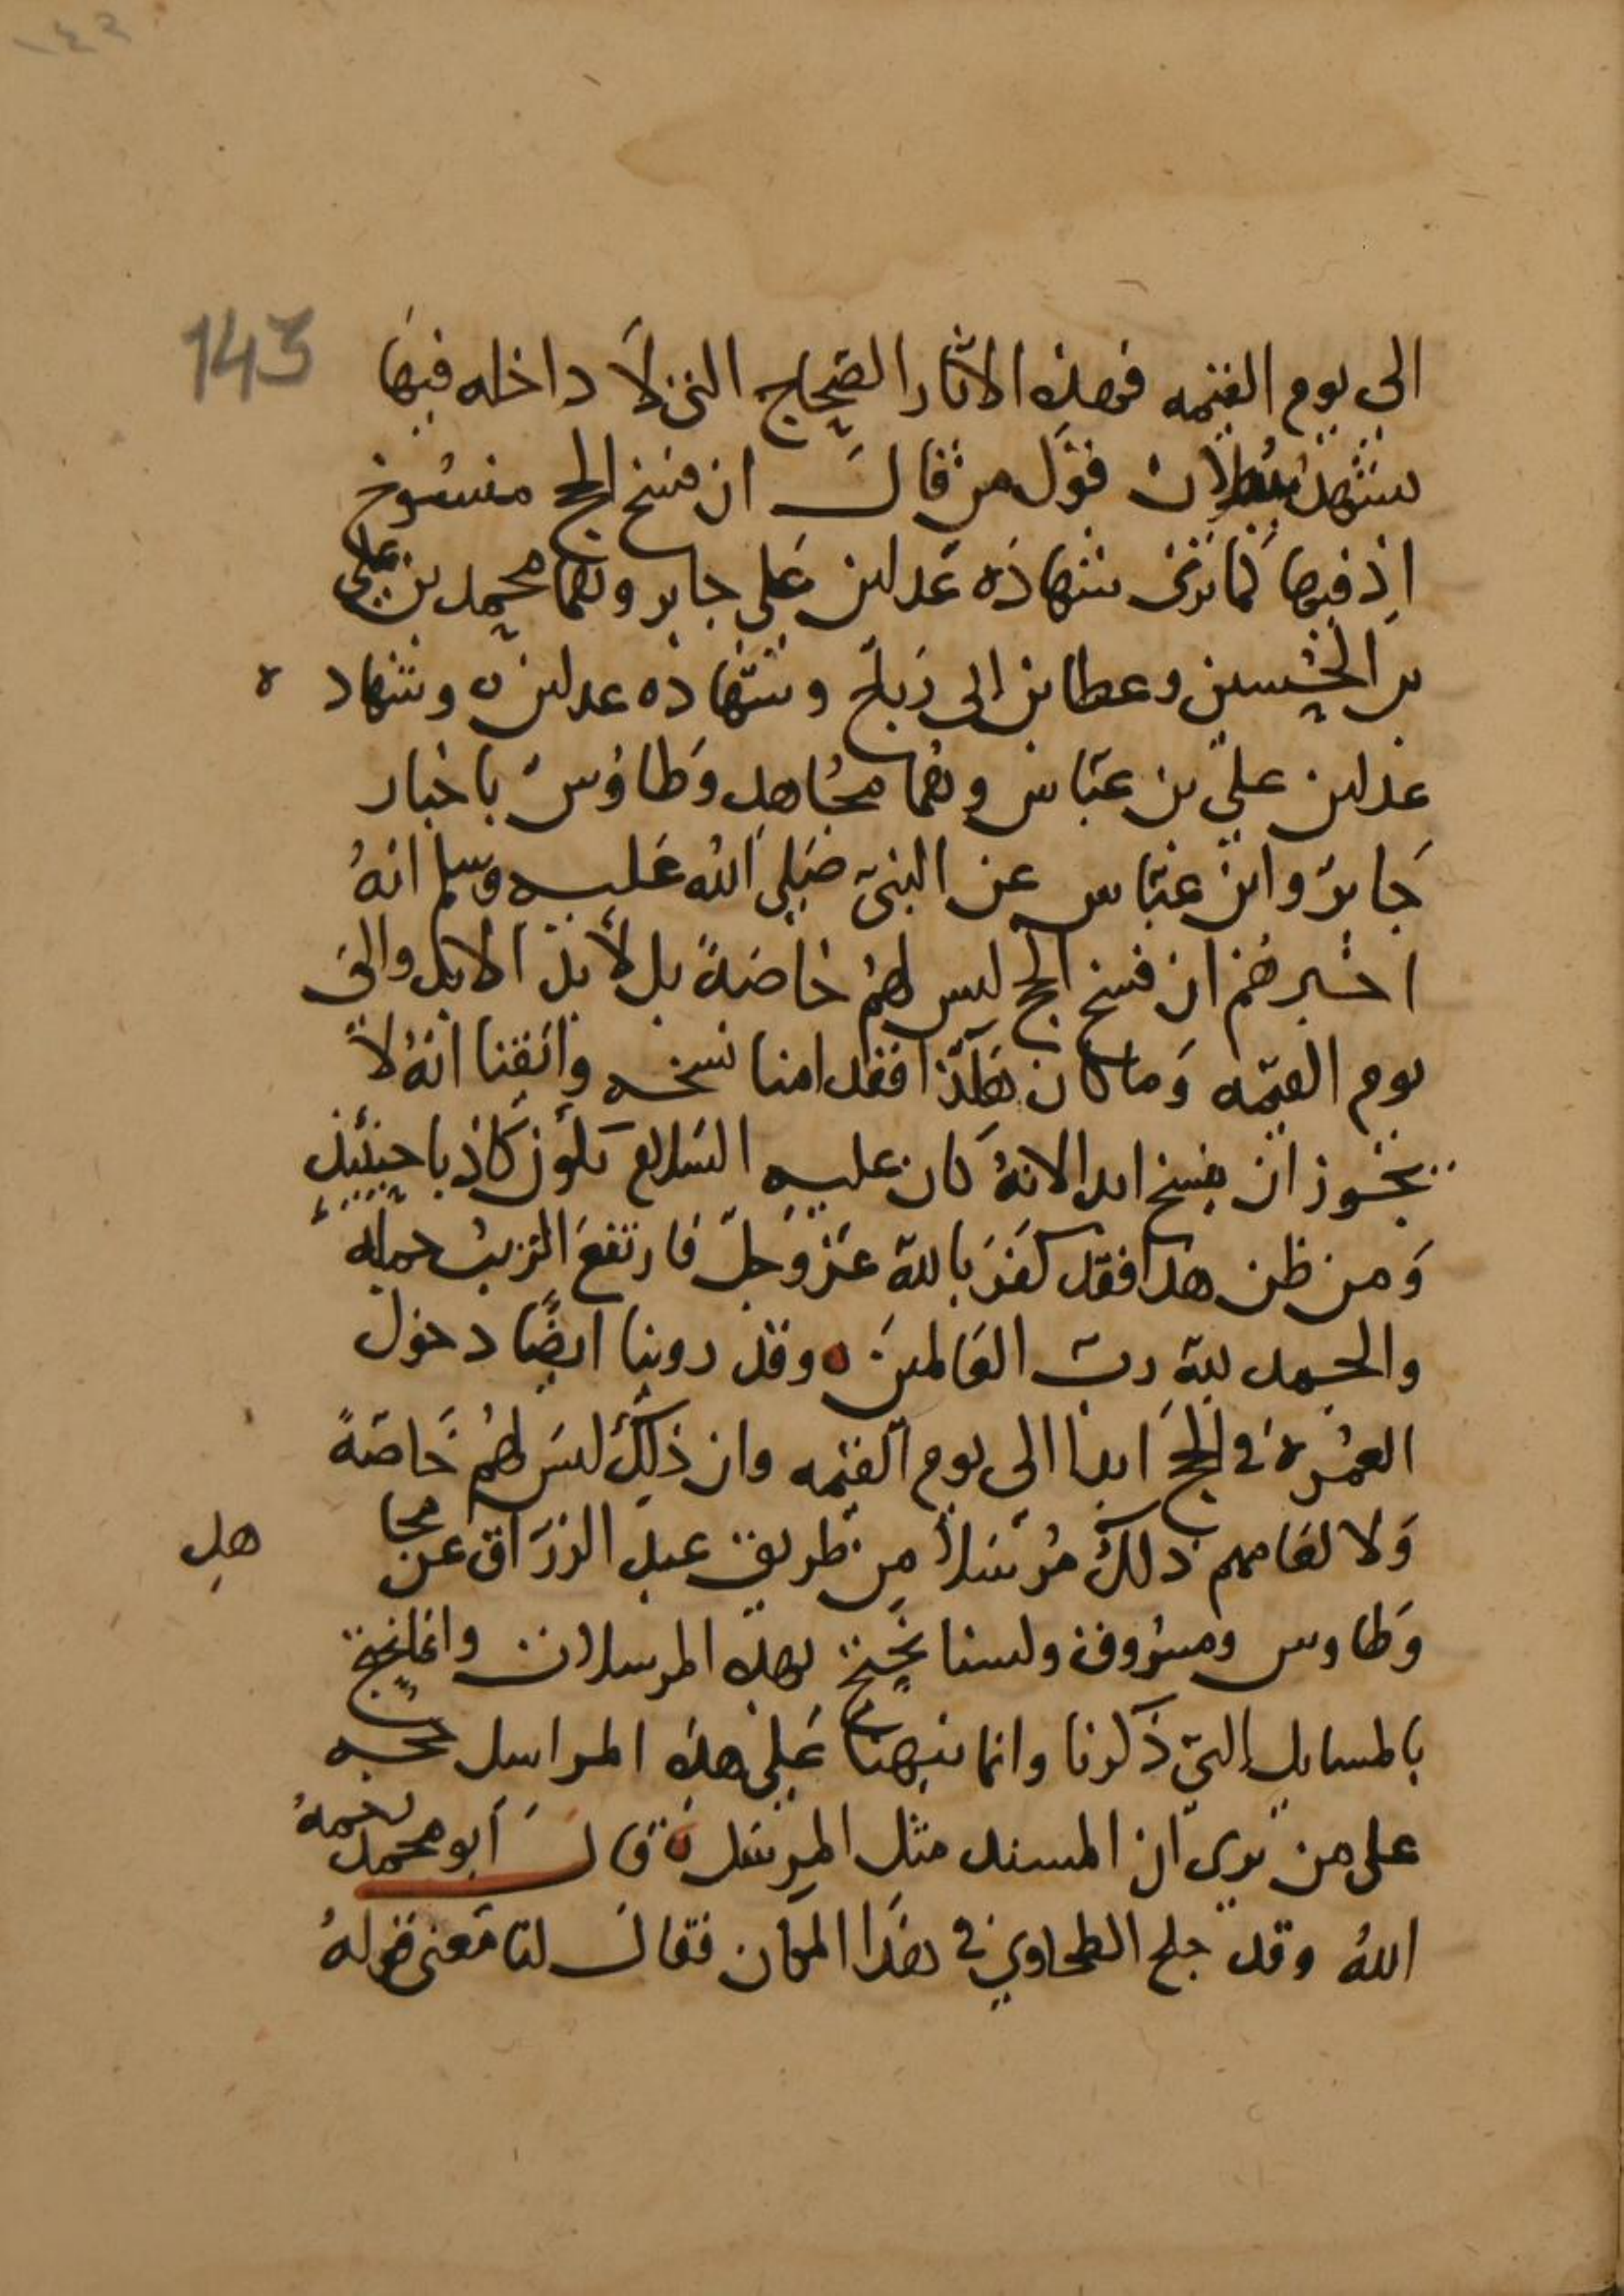 143
الى يوم القيمه فهذه الاثار الصحاح التى لا داخله فيها
تشهد ببطلان قول من قال ان فسخ الحج منسوخ
اذ فيها كما ترى شهادة عدلين على جابر وهما محمد بن على
بن الحسين وعطا بن ابى رباح وشهاده عدلين ه وشهاد ه
عدلين على بن عباس وهما مجاهد وطاوس باخبار
جابر وابن عباس عن النبى صلى الله عليه وسلم انه
اخبرهم ان فسخ الحج ليس لهم خاصة بل لأبد الابد والى
يوم القيمه وما كان هكذا فقد امنا نسخه وايقنا انه لا
يجوز ان ينسخ ابدا لانه كان عليه السلام يكون كاذبا حينئذ
ومن ظن هذا فقد كفر بالله عز وجل فارتفع الريب جملة
والحمد لله رب العالمين ه وقد روينا ايضا دخول
العمرة فى الحج ابدا الى يوم القيمه وان ذلك ليس لهم خاصة
ولا لعامهم ذلك مرسلا من طريق عبد الرزاق عن مجا هد
وطاوس ومسروق ولسنا نحتج بهذه المرسلات وانما نحتج
بالمسايل التى ذكرنا وانما نبهنا على هذه المراسل حجه
على من يرى ان المسند مثل المرسل ه قال أبو محمد رحمه
الله وقد جلح الطحاوي فى هذا المكان فقال لنا معنى قوله